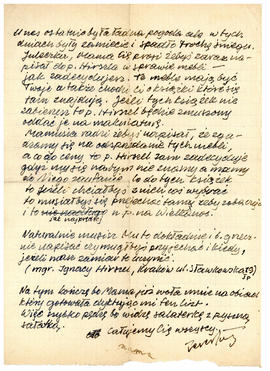 U nas ostatnio była ładna pogoda ale w tych
dniach były zamiecie i spadło trochę śniegu.
Juleczka, Mama Cię prosi żebyś zaraz na-
pisał do p. Hirszla w sprawie mebli –
jak zadecydujesz. Te meble mają być
Twoje a także chodzi o książki które się
tam znajdują. Jeżeli tych książek nie
zabierzesz to p. Hirszel będzie zmuszony
oddać je na makulaturę.
Mamusia radzi żebyś napisał, że zga-
dzamy się na odsprzedanie tych mebli,
a co do ceny to p. Hirszel sam zadecyduje
gdyż my się na tym nie znamy a mamy
do Niego zaufanie. Co do tych książek
to jeżeli chciałbyś z nich coś wybrać
to musiałbyś się przejechać tam żeby zobaczyć
i to n.p. na Wielkanoc.
Naturalnie musisz Mu to dokładnie i grzecz-
nie napisać czy mógłbyś przyjechać i kiedy,
jeżeli masz zamiar to uczynić.
(mgr. Ignacy Hirszel, Kraków ul. Sławkowska
Na tym kończę bo Mama już woła mnie na obiad
który gotowała dyktując mi ten list.
Więc szybko pędzę bo widzę salaterkę z pyszną
sałatką.
Całujemy Cię wszyscy.
mama